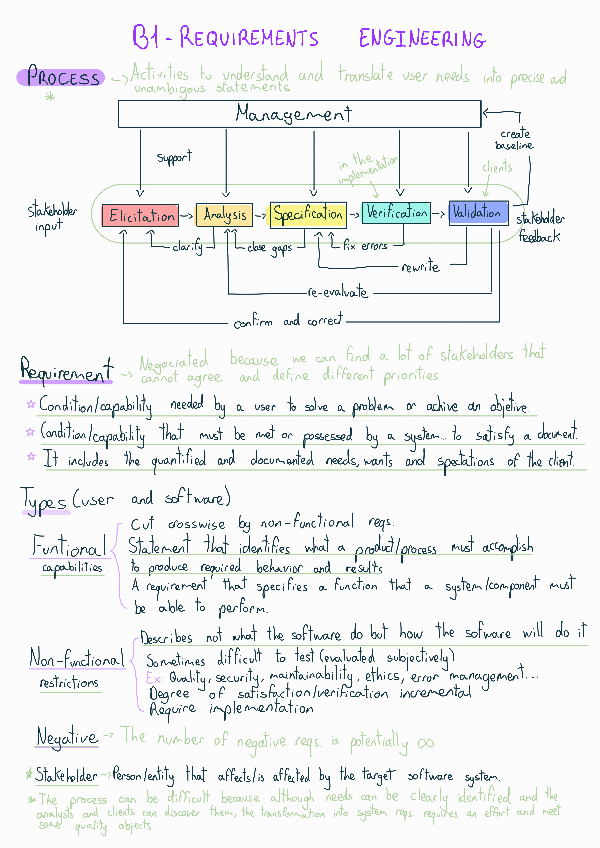 B1 - REQUIREMENTS ENGINEERING
PROCESS -> Activities to understand and translate user needs into precise and
* unambiguous statements
Management
create
baseline
support
in the
implementation
clients
stakeholder
input
Elicitation
Analysis
Specification
Verification
Validation
stakeholder
feedback
clarify
close gaps
fix errors
rewrite
re-evaluate
confirm and correct
Requirement -> Negociated because we can find a lot of stakeholders that
cannot agree and define different priorities.
☆ Condition/capability needed by a user to solve a problem or achive an objetive.
☆ Condition/capability that must be met or possessed by a system... to satisfy a document.
☆ It includes the quantified and documented needs, wants and spectations of the client.
Types (user and software)
Funtional
capabilities
Cut crosswise by non-functional reqs.
Statement that identifies what a product/process must accomplish
to produce required behavior and results
A requirement that specifies a function that a system/component must
be able to perform.
Non-functional
restrictions
Describes not what the software do but how the sofware will do it
Sometimes difficult to test (evaluated subjectively)
Ex: Quality, security, maintainability, ethics, error management...
Degree of satisfaction/verification incremental
Require implementation
Negative -> The number of negative reqs. is potentially ∞
* Stakeholder -> Person/entity that affects/is affected by the target software system.
* The process can be difficult because although needs can be clearly identified and the
analysts and clients can discover them, the transformation into system reqs requires an effort and meet
some quality objects.